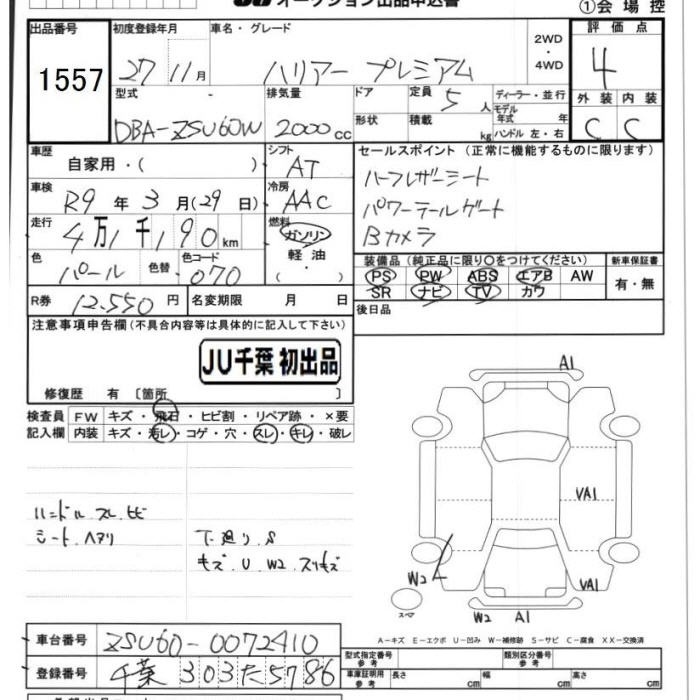 JU オークション出品申込書
①会場控
出品番号
1557
初度登録年月
27 11月
車名・グレード
ハリアー プレミアム
2WD
・
4WD
評価点
4
外装 内装
C C
型式
DBA-ZSU60W
排気量
2000cc
ドア
形状
定員 5人
積載 kg
ディーラー・並行
モデル
年式 年
ハンドル 左・右
車歴
自家用・( )
シフト
AT
車検
R9年3月(29日)
冷房
AAC
走行
4万1千190km
燃料
ガソリン
軽油
( )
色
パール
色替
色コード
070
R券
12.550円
名変期限 月 日
セールスポイント (正常に機能するものに限ります)
ハーフレザーシート
パワーテールゲート
Bカメラ
装備品 (純正品に限り○をつけてください)
PS PW ABS エアB AW
SR ナビ TV カワ
新車保証書
有・無
後日品
注意事項申告欄 (不具合内容等は具体的に記入して下さい)
JU千葉 初出品
修復歴 有 〔箇所 〕
検査員
記入欄
FW キズ・飛石・ヒビ割・リペア跡・×要
内装 キズ・汚レ・コゲ・穴・スレ・キレ・破レ
ハンドル スレ.ヒビ
シート.ヘタリ
下廻り.S
キズ.U.W2.スリキズ
A1
VA1
VA1
W2 A
スペア
W2 A1
A-キズ E-エクボ U-凹み W-補修跡 S-サビ C-腐食 XX-交換済
車台番号
ZSU60-0072410
登録番号
千葉 303 た 5786
型式指定番号
参考
類別区分番号
参考
車庫証明用
参考
長さ cm 幅 cm 高さ cm